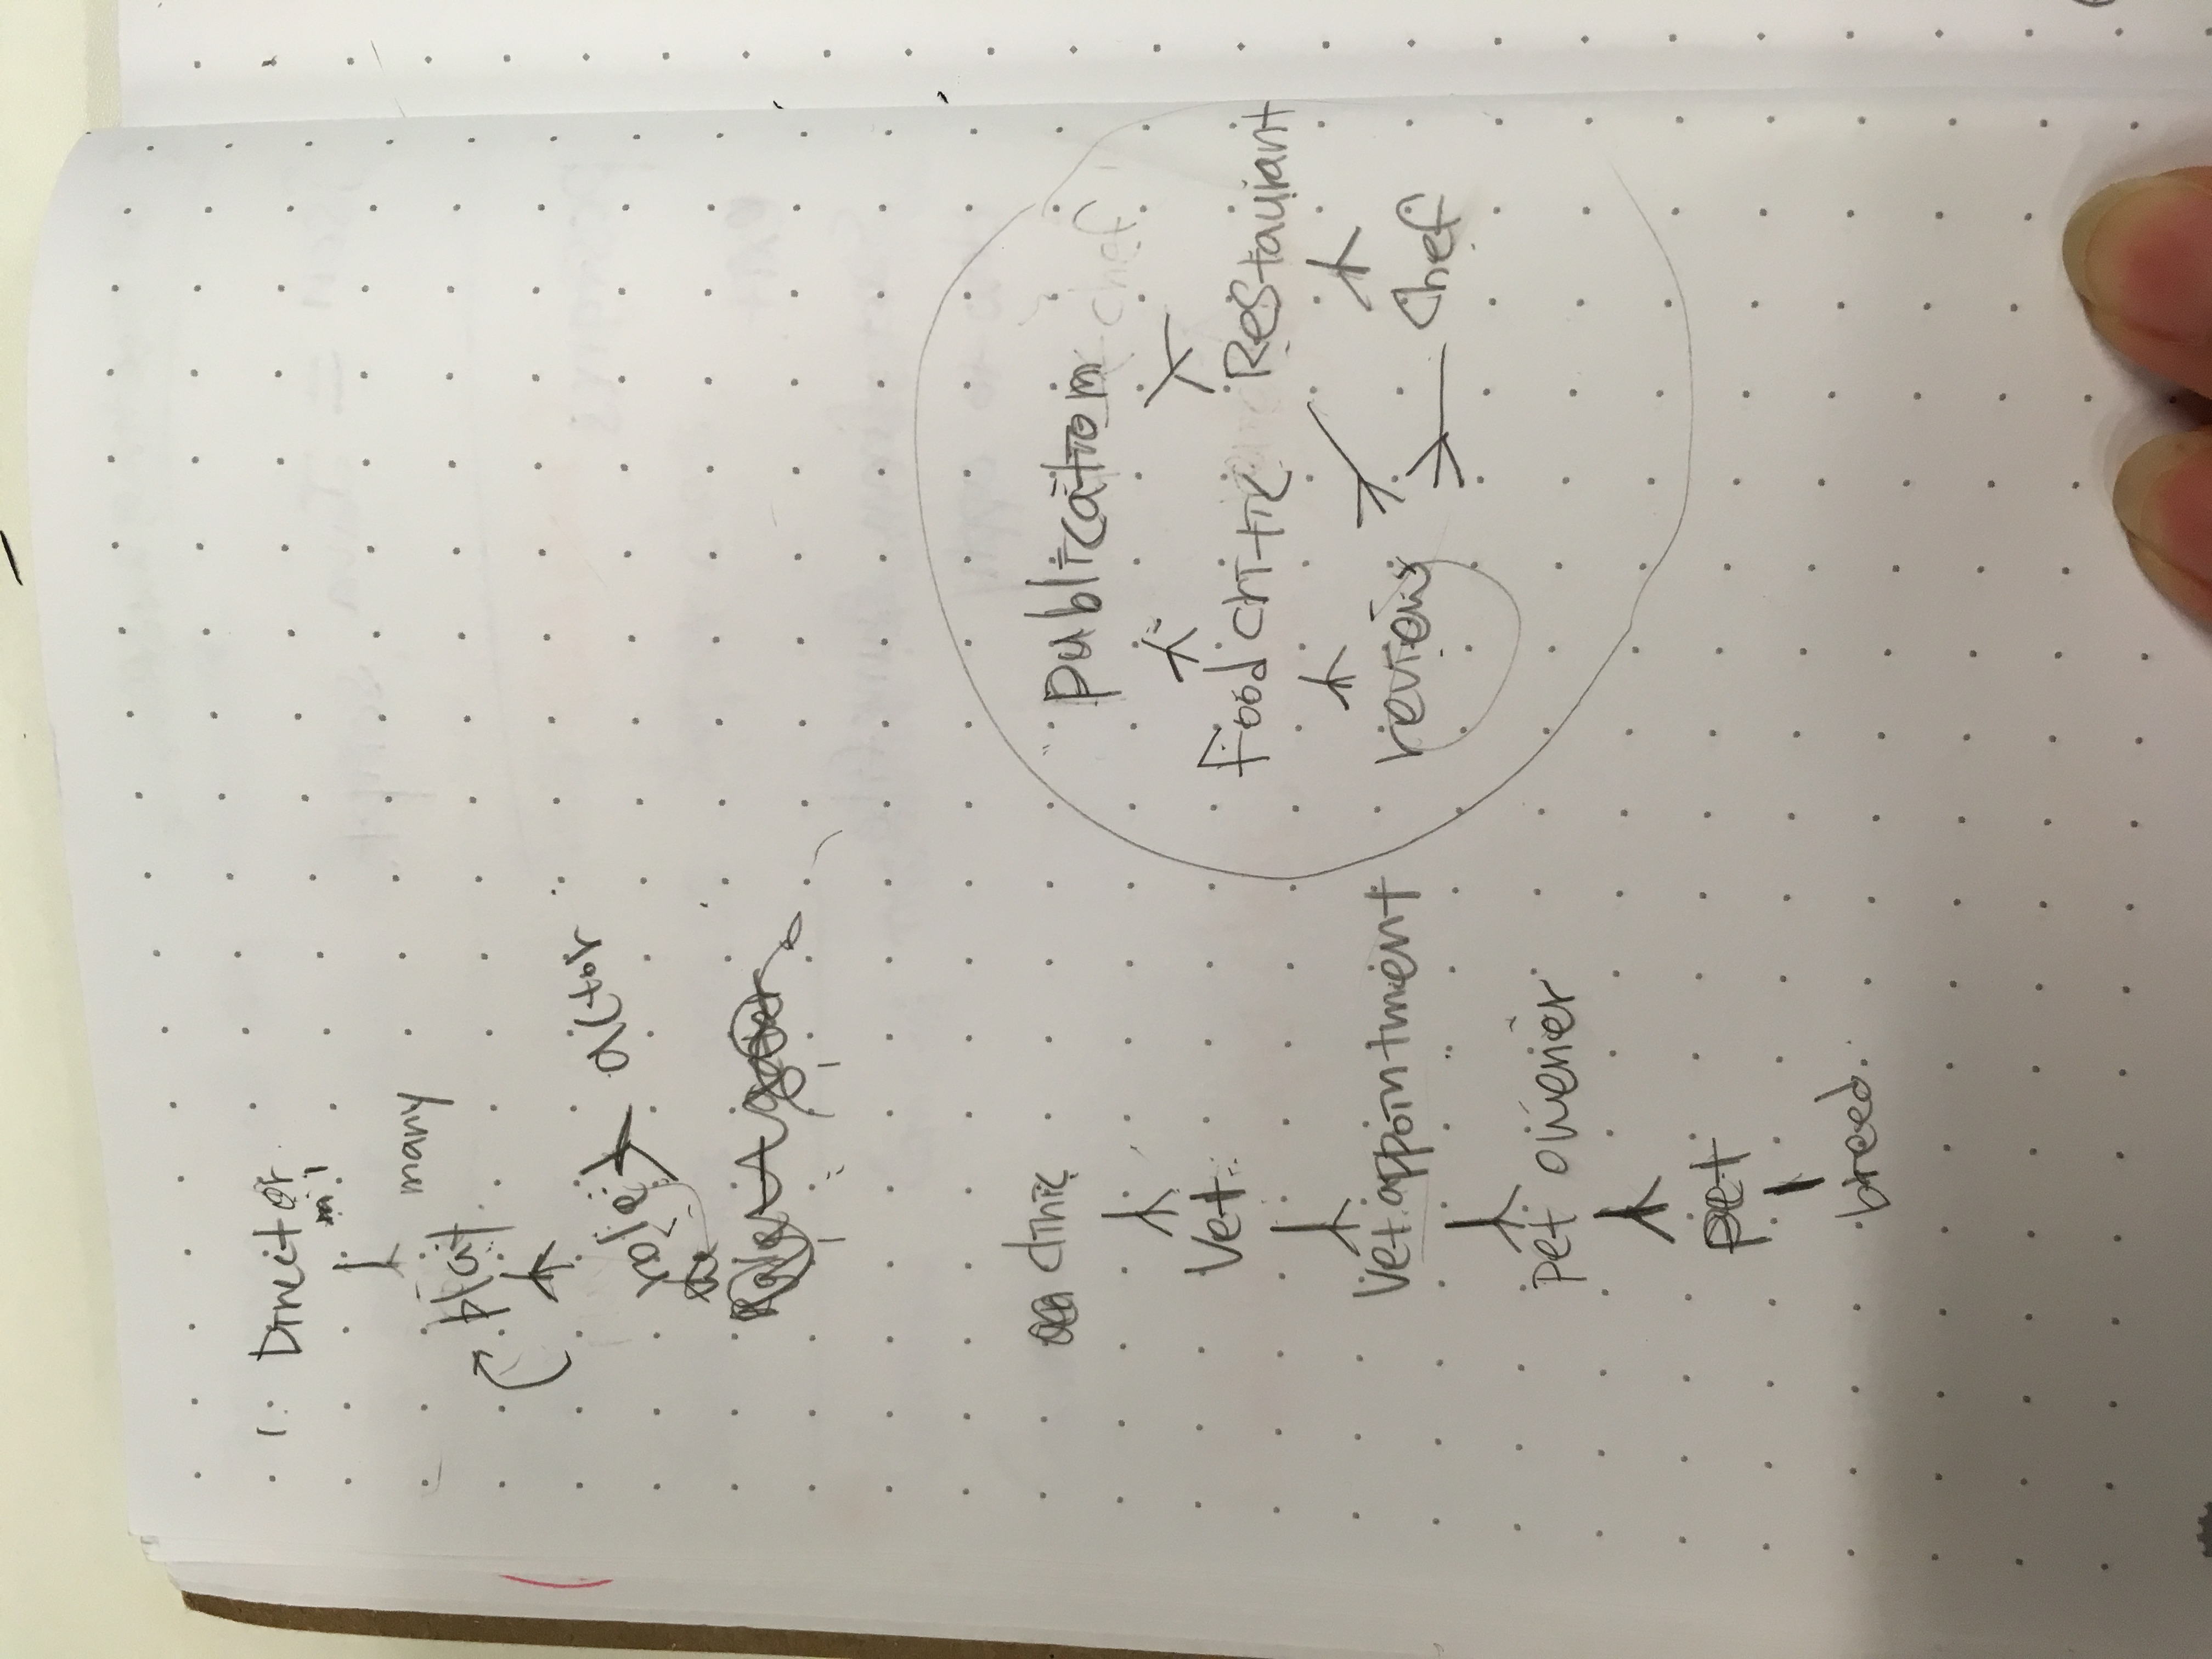 1. Director
1
many
play
role actor
1 : 1
clinic
Vet
Vet appointment
pet owener
pet
breed.
publication
Food critic Restaurant
review chef